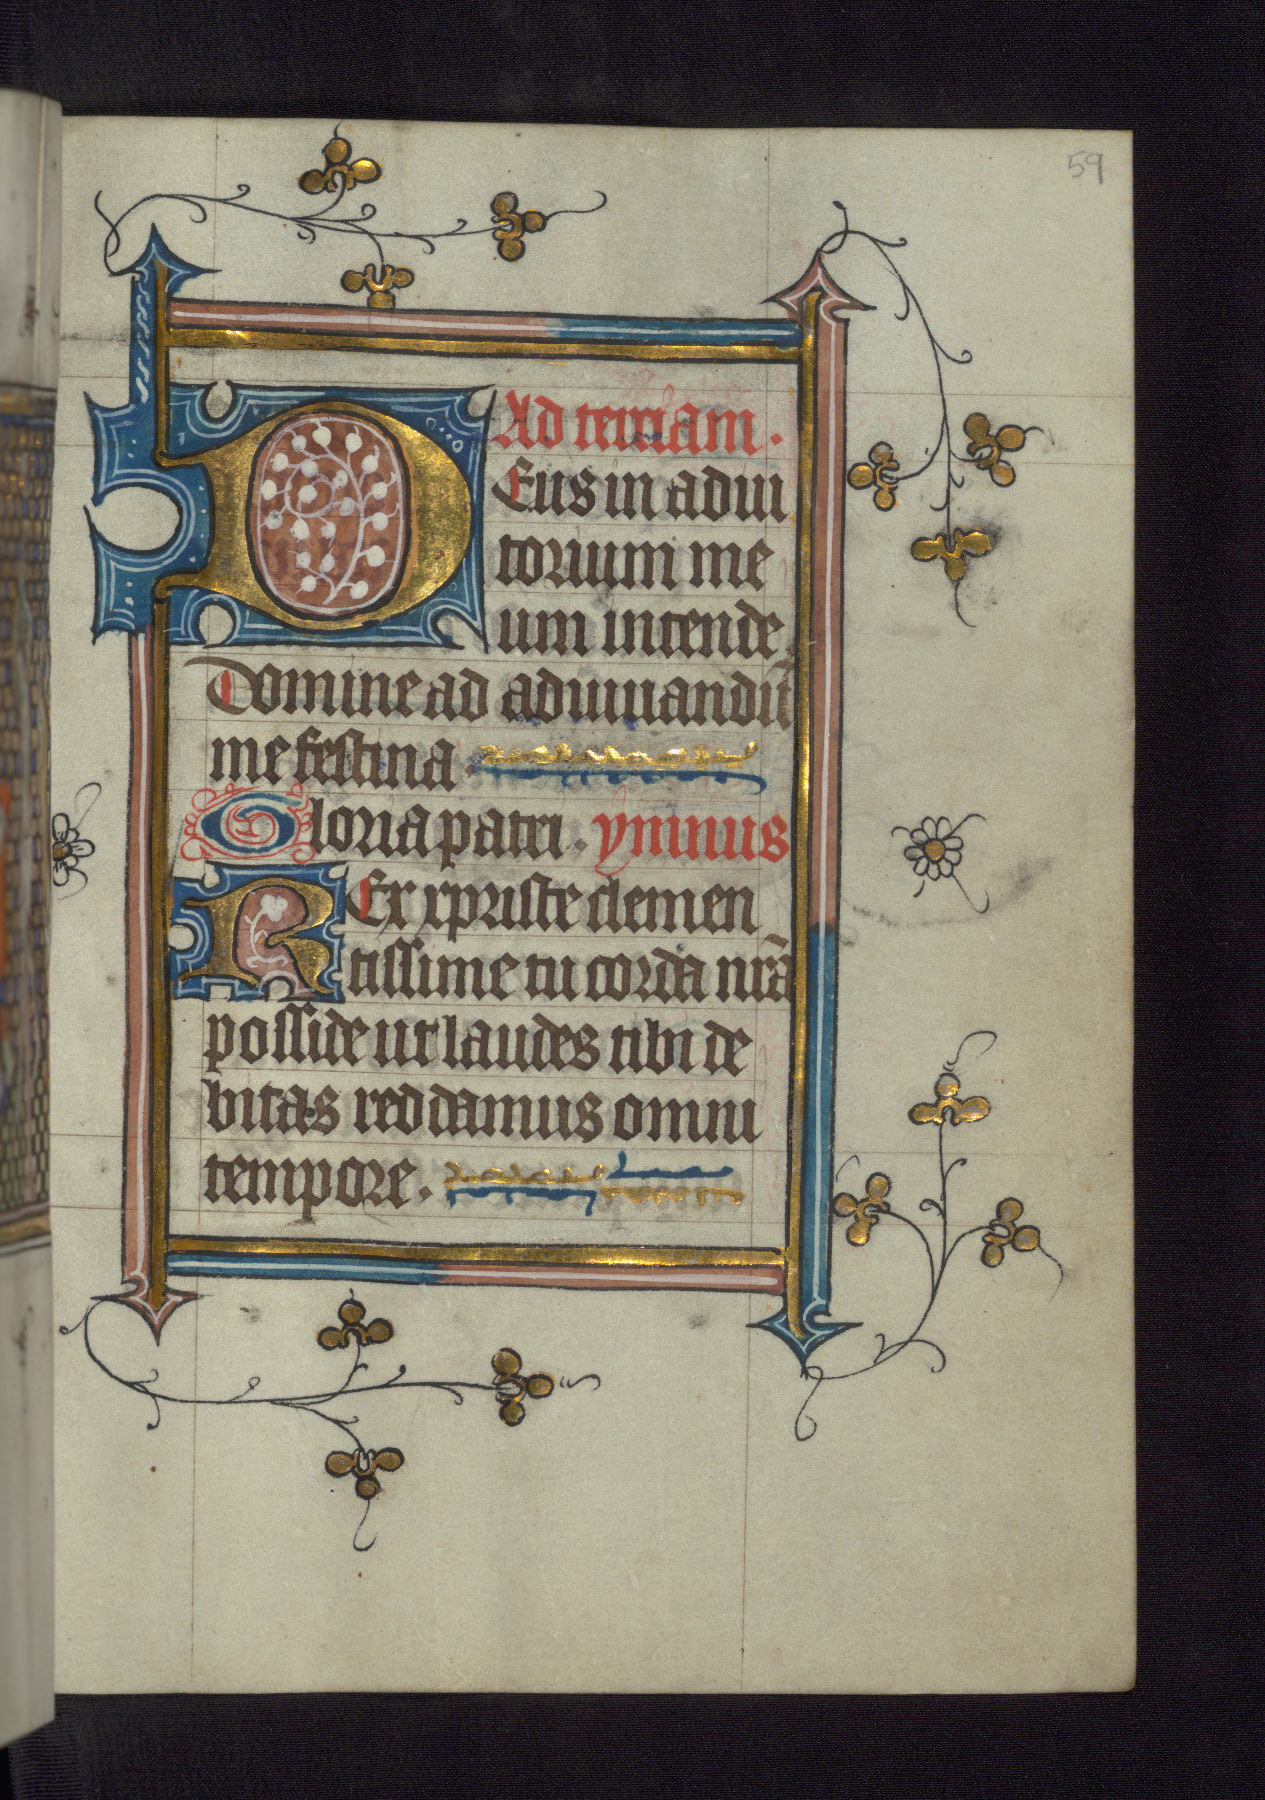 59
Ad terciam.
DEus in adiu
torium me
um intende.
Domine ad adiuuandū
me festina.
Gloria patri. ymnus
REx xpriste clemen
tissime tu corda nrā
posside ut laudes tibi de
bitas reddamus omni
tempore.